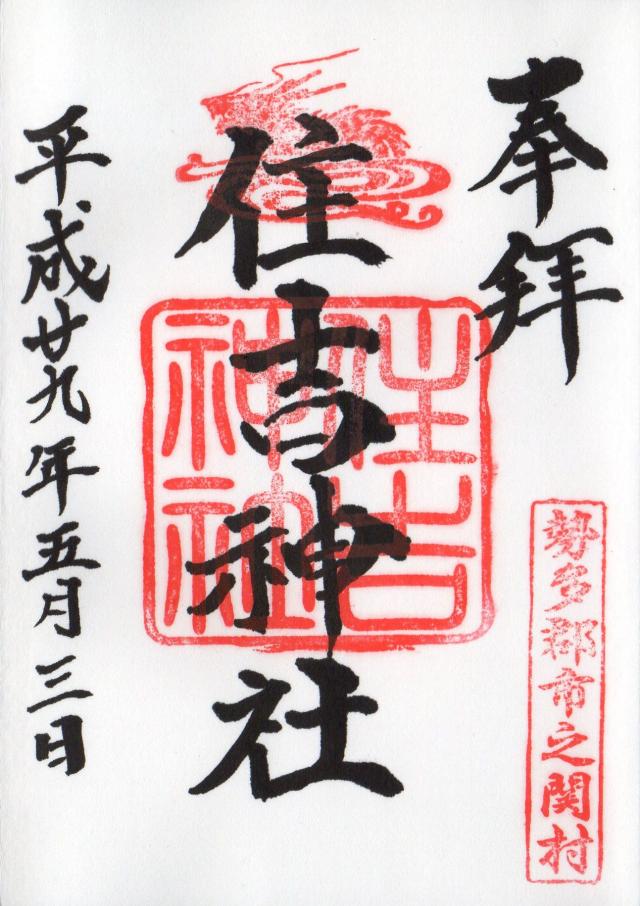 奉拝
勢多郡市之関村
住吉神社
住吉
神社
平成廿九年五月三日